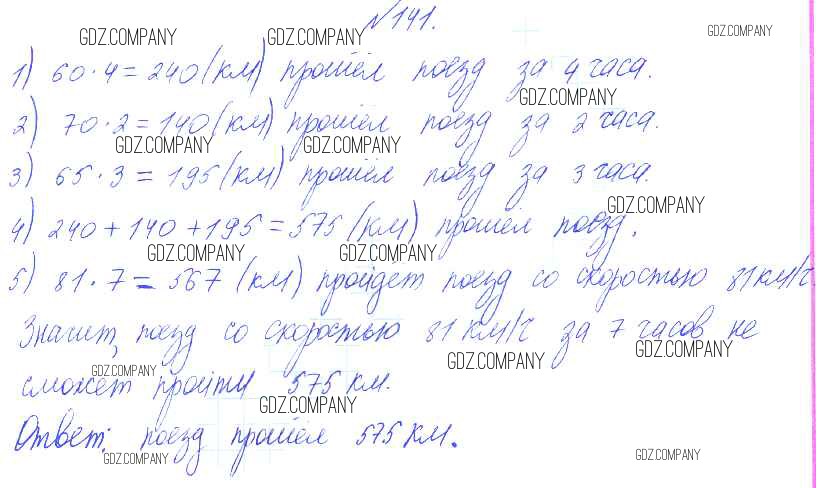 №141.
GDZ.COMPANY GDZ.COMPANY GDZ.COMPANY
1) 60·4=240(км) прошёл поезд за 4 часа.
GDZ.COMPANY
2) 70·2=140(км) прошёл поезд за 2 часа.
GDZ.COMPANY GDZ.COMPANY
3) 65·3=195(км) прошёл поезд за 3 часа.
GDZ.COMPANY
4) 240+140+195=575(км) прошёл поезд.
GDZ.COMPANY GDZ.COMPANY
5) 81·7=567(км) пройдёт поезд со скоростью 81км/ч.
Значит, поезд со скоростью 81 км/ч за 7 часов не
GDZ.COMPANY GDZ.COMPANY GDZ.COMPANY
сможет пройти 575 км.
GDZ.COMPANY
Ответ: поезд прошёл 575 км.
GDZ.COMPANY GDZ.COMPANY